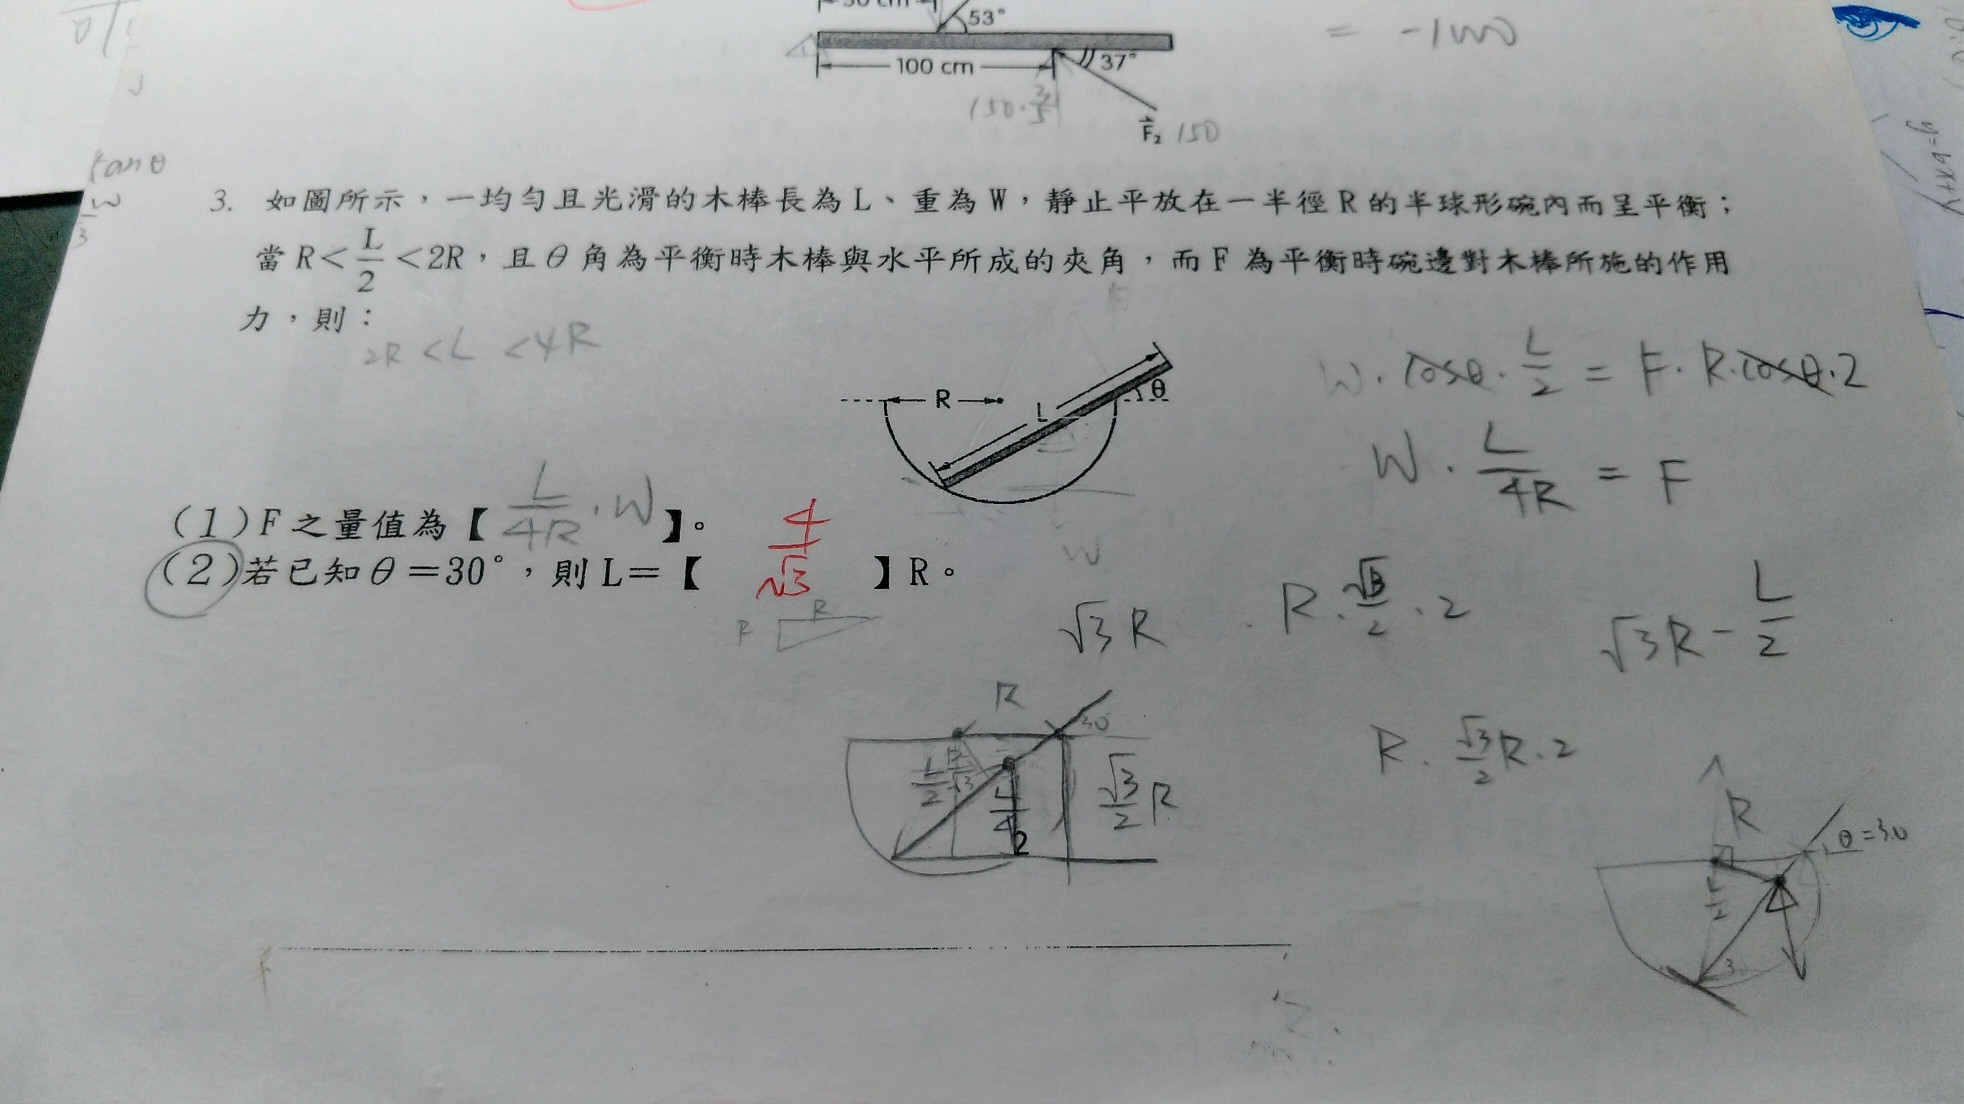 53°
= -1000
100 cm
37°
150·3/5
F₂ 150
tanθ
y=bx+x
3. 如圖所示，一均勻且光滑的木棒長為L、重為W，靜止平放在一半徑R的半球形碗內而呈平衡；
當R<L/2<2R，且θ角為平衡時木棒與水平所成的夾角，而F為平衡時碗邊對木棒所施的作用
力，則：
2R<L<4R
R
L
θ
W·cosθ·L/2 = F·R·cosθ·2
W·L/4R = F
(1)F之量值為【 L/4R·W 】。
(2)若已知θ=30°，則L=【 4/√3 】R。
W
R
√3R
R·√3/2·2
√3R-L/2
R
30
L/2
L/4
√3/2R
R·√3/2R·2
R
θ=30
L/2